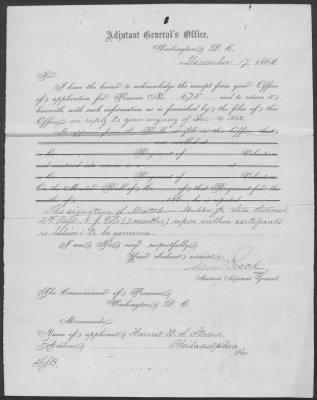 Adjutant General's Office,
Washington, D. C.
December 17, 1862
Sir:
I have the honor to acknowledge the receipt from your Office
of application for Pension No. 675 and to return it
herewith, with such information as is furnished by the files of this
Office, in reply to your inquiry of Dec. 16. 1862.
It appears from the Rolls on file in this Office, that
was enrolled at
in Co. Regiment of Volunteers
and mustered into service
in Co. Regiment of Volunteers
On the Muster Roll of Co. of that Regiment for the
he is reported
The signature of late Colonel
2d Regt. N. J. Vols (3 months) upon within certificate
is believed to be genuine.
I am, Sir, very respectfully,
Your obedient servant,
Assistant Adjutant General
The Commissioner of Pensions,
Washington, D. C.
Memoranda:
Name of applicant, Harriet
Address, Philadelphia,
Pa.